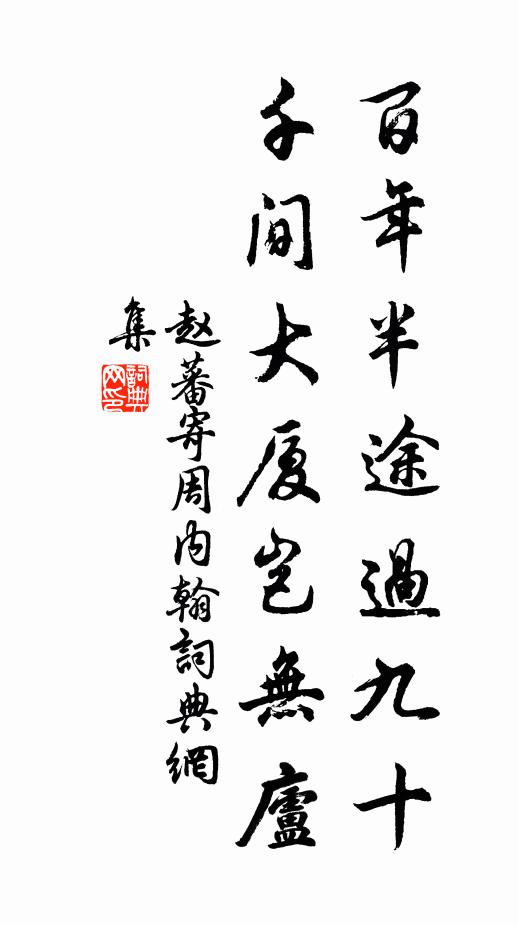 百年半途過九十
千间大厦岂無廬
赵蕃寄周内翰詞典網
集
詞典网印